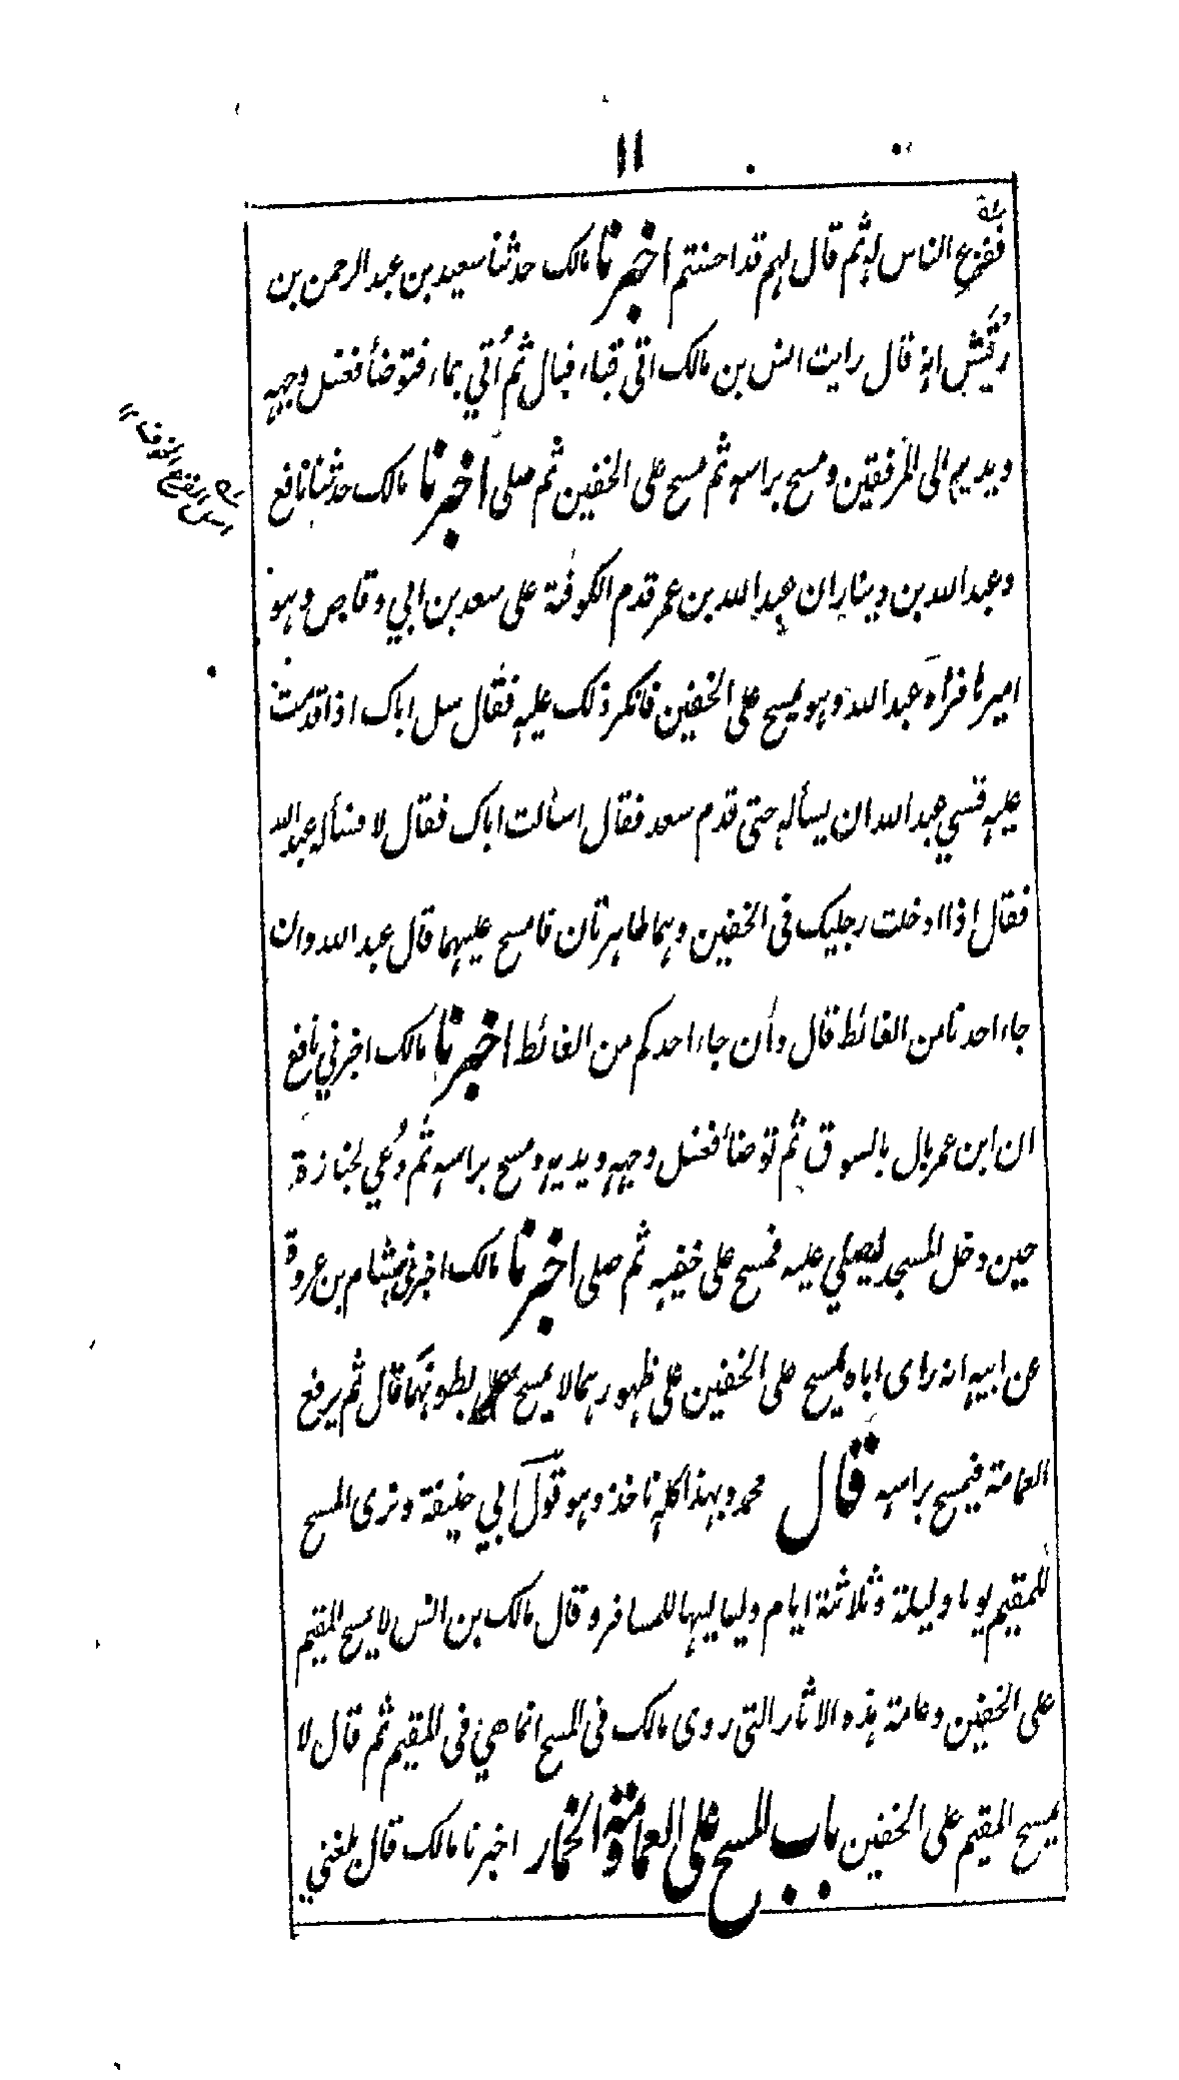 ١١
ففزع الناس له ثم قال لهم قد احسنتم اخبرنا مالك حدثنا سعيد بن عبد الرحمن بن
رُقَيْش انه قال رايت انس بن مالك اتى قباء فبال ثم اُتي بماء فتوضأ فغسل وجهه
ويديه الى المرفقين ومسح براسه ثم مسح على الخفين ثم صلى اخبرنا مالك حدثنا نافع
وعبد الله بن دينار ان عبد الله بن عمر قدم الكوفة على سعد بن ابي وقاص وهو
اميرنا فراٰه عبد الله وهو يمسح على الخفين فانكر ذلك عليه فقال سل اباك اذا قدمت
عليه فنسي عبد الله ان يسأله حتى قدم سعد فقال اسالت اباك فقال لا فسأله عبد الله
فقال اذا ادخلت رجليك فى الخفين وهما طاهرتان فامسح عليهما قال عبد الله وان
جاء احدنا من الغائط قال وان جاء احدكم من الغائط اخبرنا مالك اخبرني نافع
ان ابن عمر بال بالسوق ثم توضأ فغسل وجهه ويديه ومسح براسه ثم دُعي لجنازة
حين دخل المسجد ليصلي عليه فمسح على خفيه ثم صلى اخبرنا مالك اخبرنى هشام بن عروة
عن ابيه انه راى اباه يمسح على الخفين على ظهورهما لا يمسح على بطونهما قال ثم يرفع
العمامة فيمسح براسه قال محمد وبهذا كله ناخذ وهو قول ابي حنيفة ونرى المسح
للمقيم يوما وليلة وثلاثة ايام ولياليها للمسافر وقال مالك بن انس لا يمسح المقيم
على الخفين وعامة هذه الاثار التى روى مالك فى المسح انما هي فى المقيم ثم قال لا
يمسح المقيم على الخفين باب المسح على العمامة والخمار اخبرنا مالك قال بلغني